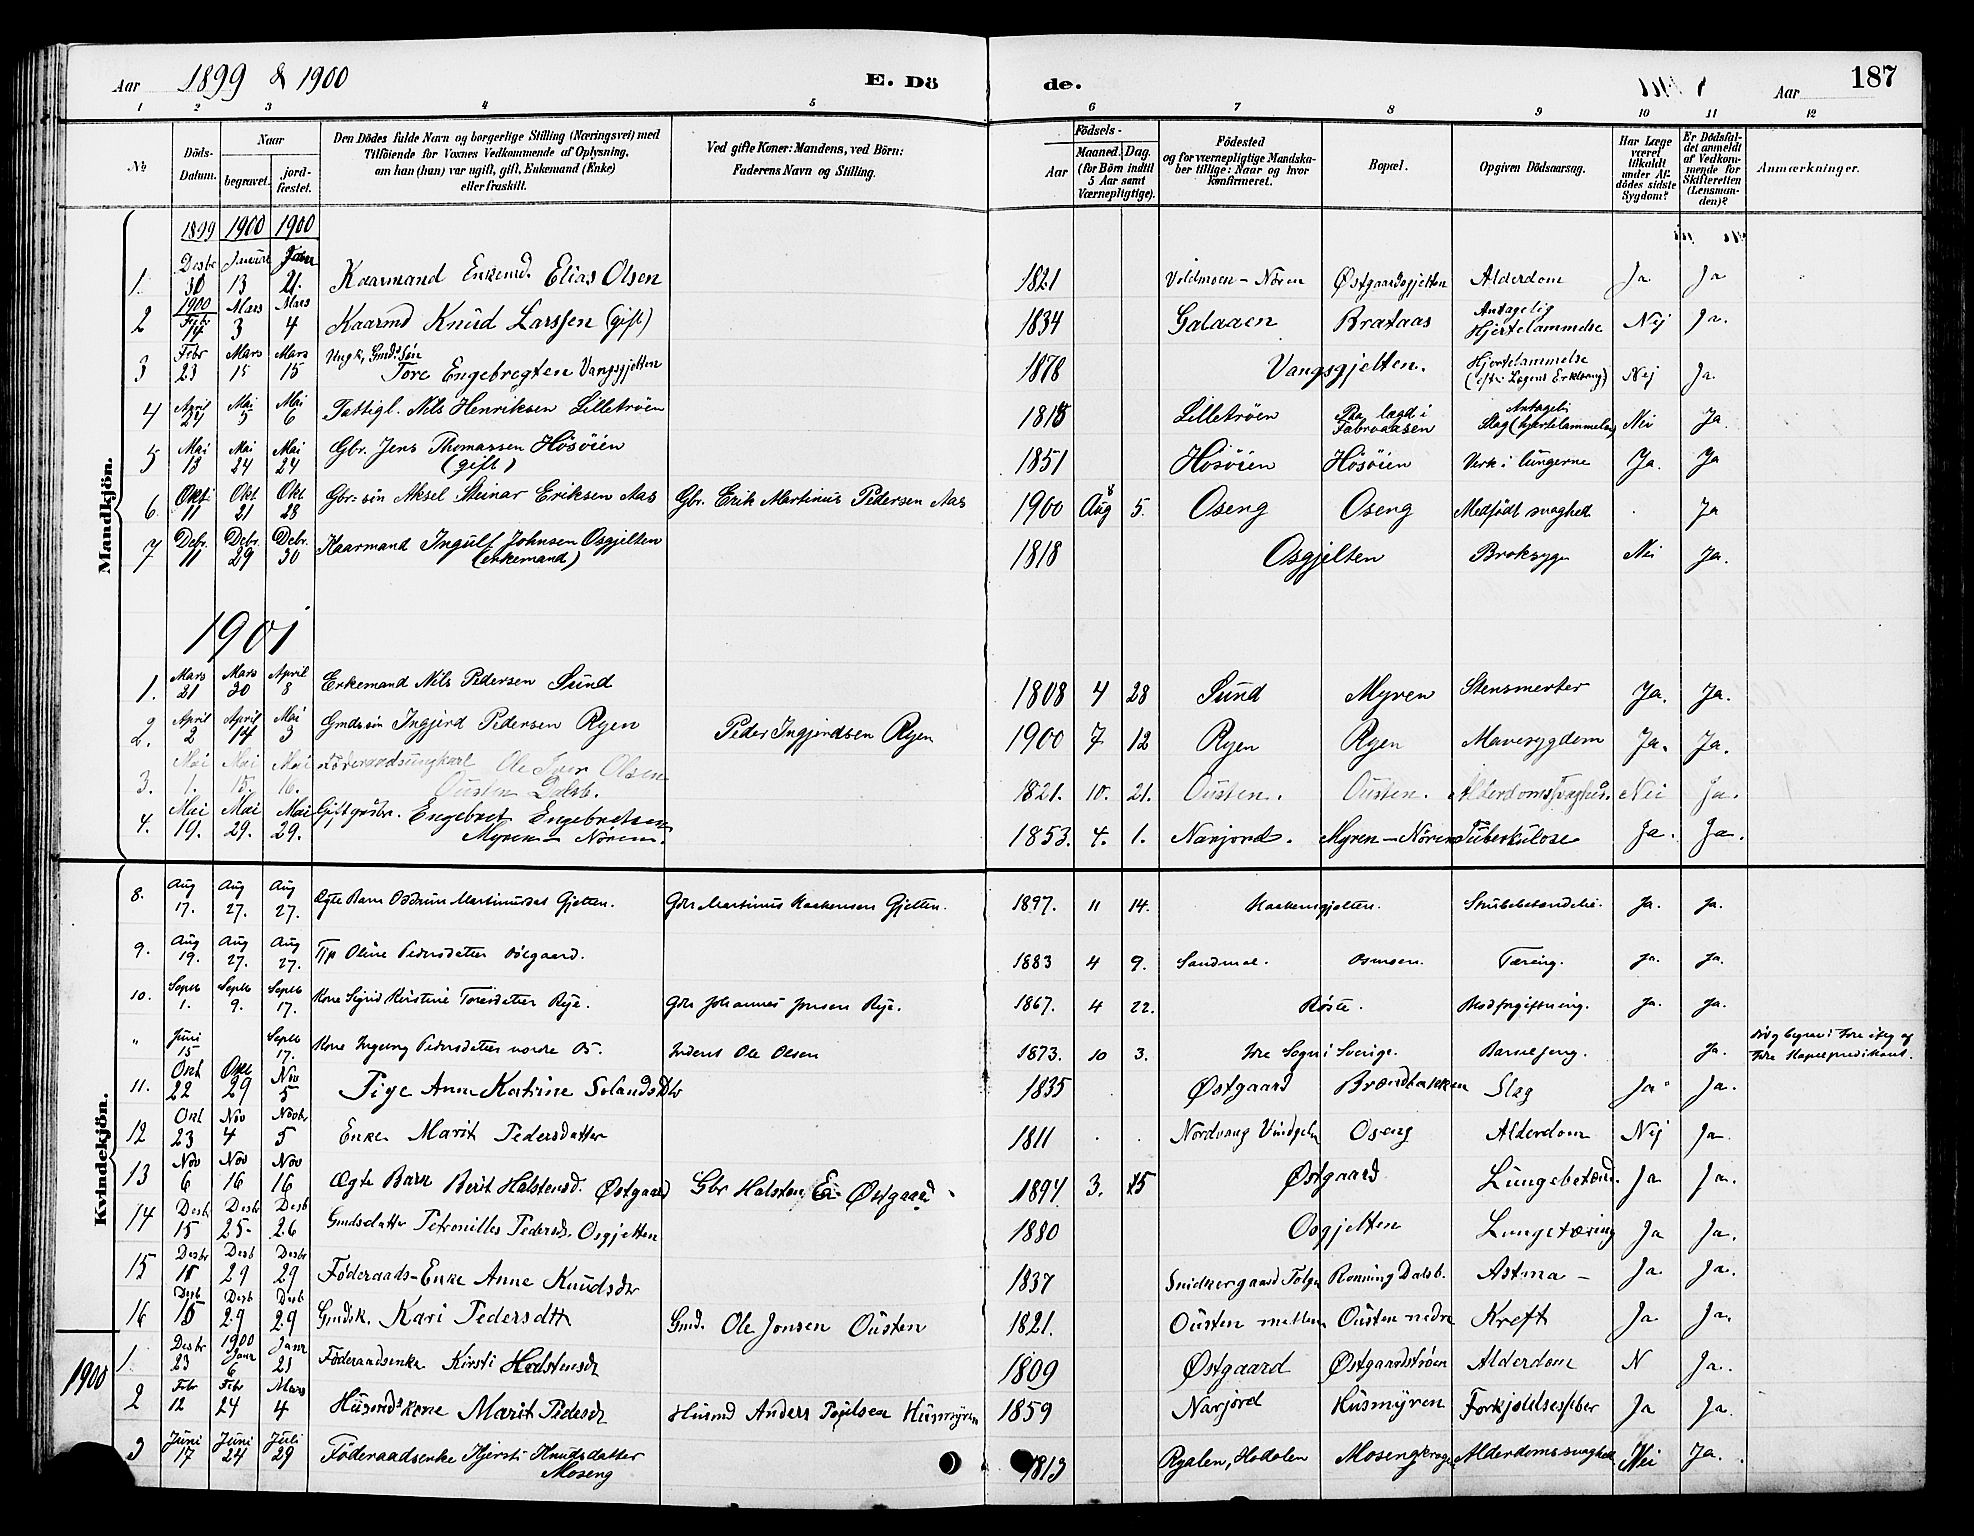 Aar 1899 & 1900 E. Dö de. Aar 187
1 2 3 4 5 6 7 8 9 10 11 12
No.
Döds-Datum.
Naar
begravet.
jordfæstet.
Den Dödes fulde Navn og borgerlige Stilling (Næringsvei) med
Tilföiende for Voxnes Vedkommende af Oplysning,
om han (hun) var ugift, gift, Enkemand (Enke)
eller fraskilt.
Ved gifte Koner: Mandens, ved Börn:
Faderens Navn og Stilling.
Födsels-
Aar
Maaned. Dag.
(for Börn indtil
5 Aar samt
Værnepligtige).
Födested
og for værnepligtige Mandska-
ber tillige: Naar og hvor
konfirmeret.
Bopæl.
Opgiven Dödsaarsag.
Har Læge
været
tilkaldt
under Af-
dödes sidste
Sygdom?
Er Dödsfal-
det anmeldt
af Vedkom-
mende for
Skifteretten
(Lensman-
den)?
Anmærkninger.
Mandkjön.
1899 1900 1900
1. Desbr 30 Januar 13 Jan 21. Kaarmand Enkemd. Elias Olsen 1821 Voldmoen - Nören Østgaardsgjelten Alderdom Ja Ja
2 1900 Feb 14 Mars 3 Mars 4 Kaarmd Knud Larssen (gift) 1834 Galaaen Brataas Antagelig Hjertelammelse Nej Ja.
3 Febr 23 Mars 15 Mars 15 Ungk, Gmds sön Tore Engebregten Vangsgjelten 1878 Vangsgjelten. Hjertelammelse (efter Lægens Erklæring) Nej Ja.
4 April 24 Mai 5 Mai 6 Fattigl. Nils Henriksen Lilletröen 1815 Lilletröen Paa lægd i Fabroaasen Antageli Slag (hjertelammelse) Nei Ja.
5 Mai 13 Mai 24 Mai 24 Gbr. Jens Thomassen Hösöien (gift) 1851 Hösöien Hösöien Verk i lungerne Ja. Ja
6. Okt 11 Okt 21 Okt 28 Gbr-sön Aksel Steinar Eriksen Aas Gbr. Erik Martinus Pedersen Aas 1900 Aug 8 5. Oseng Oseng Medfödt svaghed. Ja
7 Debr. 11 Debr. 29 Debr. 30 Kaarmand Ingulf Johnsen Osgjelten (enkemand) 1818 Osgjelten Broksyge Nei Ja.
1901
1. Mars 21 Mars 30 April 8 Enkemand Nils Pedersen Sund 1808 4 28 Sund Myren Stensmerter Ja. Ja.
2. April 2 April 14 Mai 3 Gmdssön Ingjerd Pedersen Ryen Peder Ingjerdsen Ryen 1900 7 12 Ryen Ryen Mavesygdom Ja. Ja.
3. Mai 1. Mai 15. Mai 16. Föderaadsungkarl Ole Iver Olsen Ousten Dalsb. 1821. 10. 21. Ousten. Ousten. Alderdomssvaghed. Nei Ja.
4. Mai 19. Mai 29. Mai 29. Gift gaardbr. Engebret Engebretsen Myren - Nören. 1853. 4. 1. Narjord. Myren - Nören Tuberkulose Ja. Ja.
Kvindekjön.
8. Aug 17. Aug 27. Aug 27. Ægte Barn Oddrun Martinusdat Gjelten. Gbr Martinus Haakensen Gjelten. 1897. 11 14. Haakensgjelten. Strubebetændelse. Ja. Ja.
9. Aug 19. Aug 27. Aug 27. Tjp Oline Pedersdatter Ödegaard. 1883 4 9. Sandmoe. Osmoen. Tæring. Ja. Ja.
10. Septb 1. Septb 9. Septb 17. Kone Sigrid Kirstine Toresdatter Rye. Gbr Johannes Jonsen Rye. 1867. 4 22. Röste. Blodforgiftning. Ja. Ja.
" Juni 15 Septb 17. Kone Ingeborg Pedersdatter nordre Os. Inderst Ole Olsen 1873. 10 3. Idre Sogn i Sverige. Barselseng. Ja. Död og begravet i Idre
11. Okt 22 Okt 29 Nov 5 Pige Anne Katrine Solandsdtr 1835 Østgaard Brændbakken Slag Ja Ja.
12 Okt 23 Nov 4 Novbr 5 Enke Marit Pedersdatter 1811 Nordvang Vindgeln Oseng Alderdom Nej Ja
13 Nov 6 Nov 16 Nov 16 Ægte Barn Berit Halstensd. Østgaard Gbr Halsten E. Østgaard 1894 3. 15 Østgaard Lungebetænd. Ja Ja.
14 Desb 15 Desbr 25- Desb 26 Gmdsdatter Petronille Pedersd. Osgjelten 1880 Osgjelten Lungetæring Ja Ja.
15 Desbr 18 Desb 29 Desbr 29 Föderaads-Enke Anne Knudsdtr 1837 Snidkergaard Tolgen Ronning Dalsb. Astma - Ja Ja.
16 Desb 15 Desb 29 Desb 29 Gmdsk. Kari Pedersdtt Gmd. Ole Jonsen Ousten 1821. Ousten mellem Ousten nedre Kreft Ja Ja.
1900
1. Desbr 23 1900 Janr 6 Janr 21 Föderaadsenke Kirsti Halstensdr 1809 Østgaard Østgaardströen Alderdom N Ja.
2 Febr 12 Febr 24 Mars 4 Husmds kone Marit Pedersdr Husmd Anders Paulsen Husmyren 1859 Narjord Husmyren Forkjölelsesfeber Ja Ja.
3 Juni 17 Juni 24 Juli 29 Föderaadsenke Kjersti Knudsdatter Moseng 1813 Ryalen, Hodalen Mosengkroge Alderdomssvaghed Nei Ja.